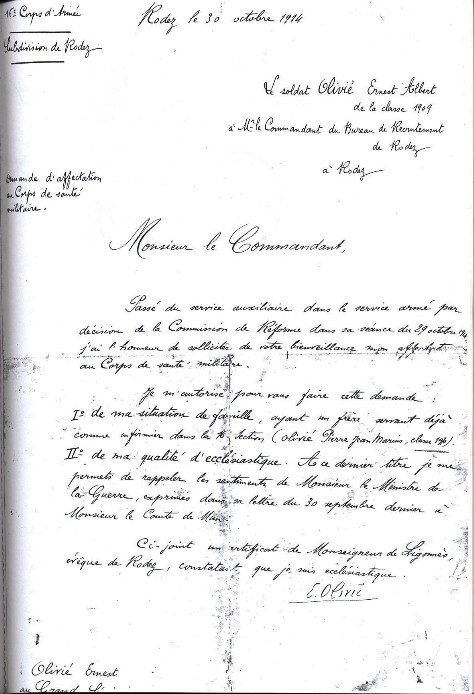 16e Corps d'Armée
Subdivision de Rodez
Rodez le 30 octobre 1914
Le soldat Olivié Ernest Albert
de la classe 1909
à Mr le Commandant du Bureau de Recrutement
de Rodez
à Rodez
Demande d'affectation
au Corps de santé
militaire.
Monsieur le Commandant,
Passé du service auxiliaire dans le service armé par
décision de la Commission de Réforme dans sa séance du 29 octobre
j'ai l'honneur de solliciter de votre bienveillance mon affectation
au Corps de santé militaire.
Je m'autorise pour vous faire cette demande :
I° de ma situation de famille, ayant un frère servant déjà
comme infirmier dans la 16e Section (Olivié Pierre Jean Marius, classe
II° de ma qualité d'ecclésiastique. A ce dernier titre je me
permets de rappeler les sentiments de Monsieur le Ministre de
la Guerre, exprimés dans sa lettre du 30 septembre dernier à
Monsieur le Comte de Mun.
Ci-joint un certificat de Monseigneur de Ligonnès,
évêque de Rodez, constatant que je suis ecclésiastique.
E. Olivié
Olivié Ernest
au Grand